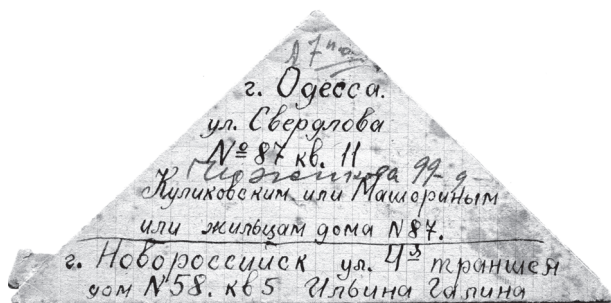 27
г. Одесса.
ул. Свердлова
№ 87 кв. 11
99
Куликовским или Машориным
или жильцам дома N 87.
г. Новороссийск ул. 4я траншея
дом N 58. кв 5 Ильина Галина